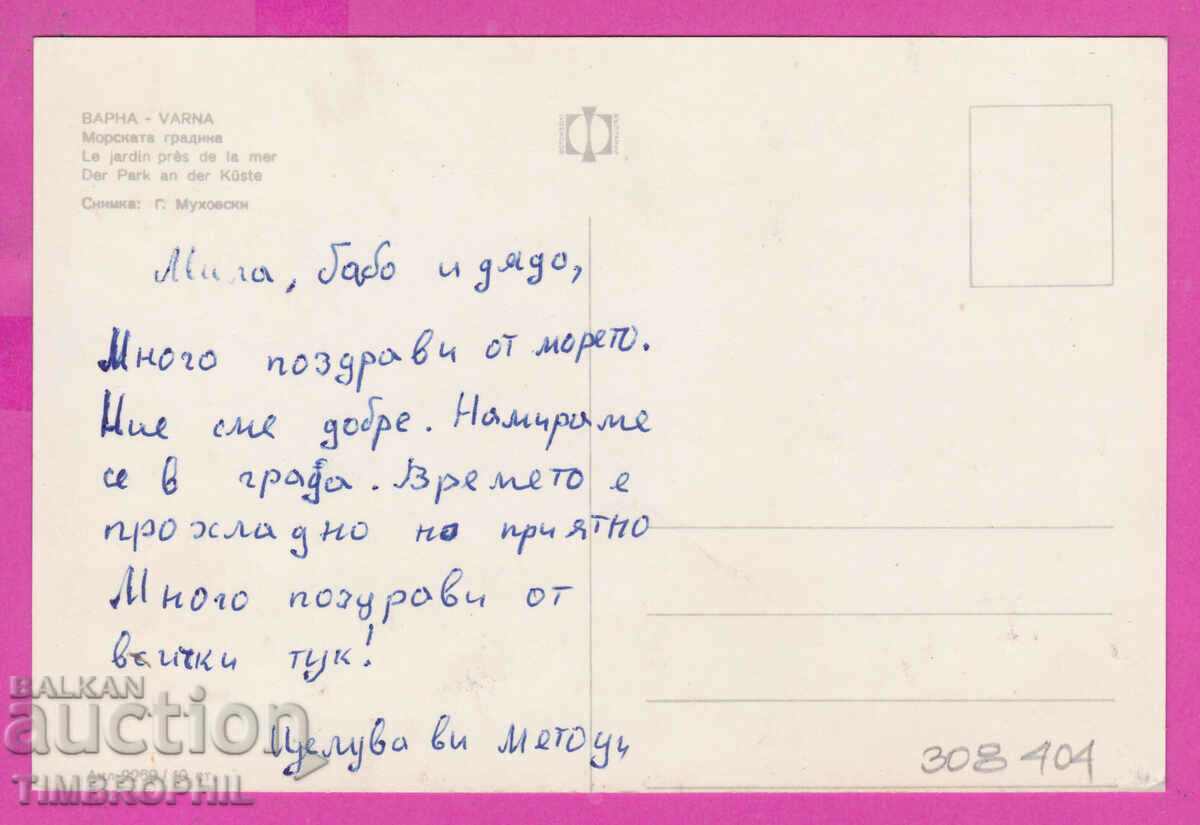 ВАРНА - VARNA
Морската градина
Le jardin près de la mer
Der Park an der Küste
Снимка: Г. Муховски
Мила, бабо и дядо,
Много поздрави от морето.
Ние сме добре. Намираме
се в града. Времето е
прохладно но приятно
Много поздрави от
всички тук!
Целува ви Методи
308 404
BALKAN
auction
TIMBROPHIL